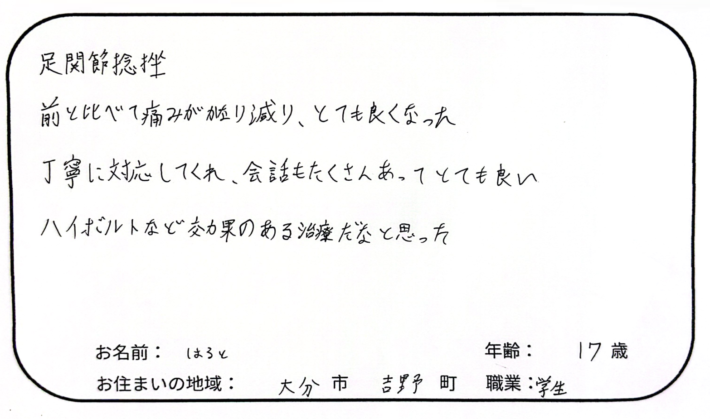 足関節捻挫
前と比べて痛みがかなり減り、とても良くなった
丁寧に対応してくれ、会話もたくさんあってとても良い
ハイボルトなど効果のある治療だなと思った
お名前： はると 年齢： 17 歳
お住まいの地域： 大分 市 吉野 町 職業：学生